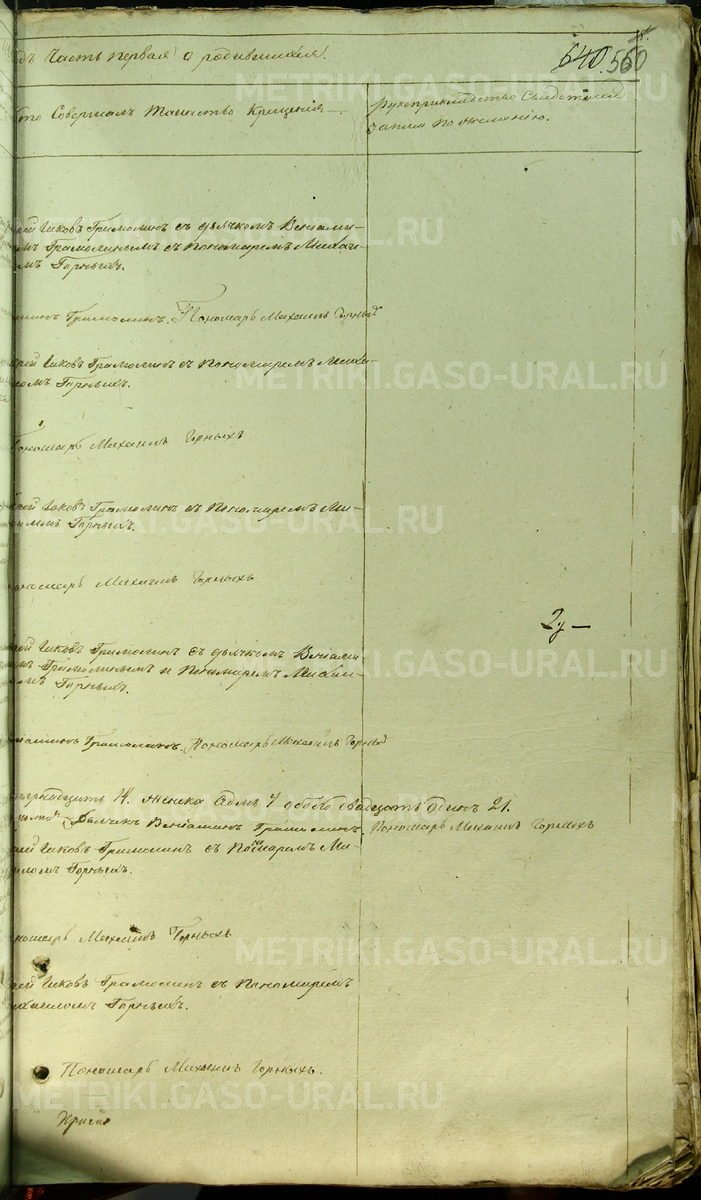 Часть первая о родившихся.
640. 560
Кто Совершалъ Таинство Крещенія
Рукоприкладство Свидетелей
записи по желанію.
рей Іаковъ Грамолинъ съ дьячкомъ Веніами-
мъ Грамолинымъ съ Пономаремъ Михаи-
мъ Горныхъ.
METRIKI.GASO-URAL.RU
Грамолинъ. Пономарь Михаилъ Горных
рей Іаковъ Грамолинъ съ Пономаремъ Миха-
ломъ Горныхъ.
METRIKI.GASO-URAL.RU
Пономарь Михаилъ Горныхъ
рей Іаковъ Грамолинъ съ Пономаремъ Ми-
Горныхъ.
METRIKI.GASO-URAL.RU
Пономарь Михаилъ Горныхъ
рей Іаковъ Грамолинъ съ дьячкомъ Веніами
мъ Грамолинымъ и Пономаремъ Михаи-
мъ Горныхъ.
METRIKI.GASO-URAL.RU
ніаминъ Грамолинъ, Пономарь Михаилъ Горных
14. женска 7 обоего двадцать одинъ 21.
Дьячекъ Веніаминъ Грамолинъ. Пономарь Михаилъ Горныхъ
рей Іаковъ Грамолинъ съ Пономаремъ Ми-
ломъ Горныхъ.
номарь Михаилъ Горныхъ
METRIKI.GASO-URAL.RU
рей Іаковъ Грамолинъ съ Пономаремъ
хаиломъ Горныхъ.
Пономарь Михаилъ Горныхъ.
METRIKI.GASO-URAL.RU